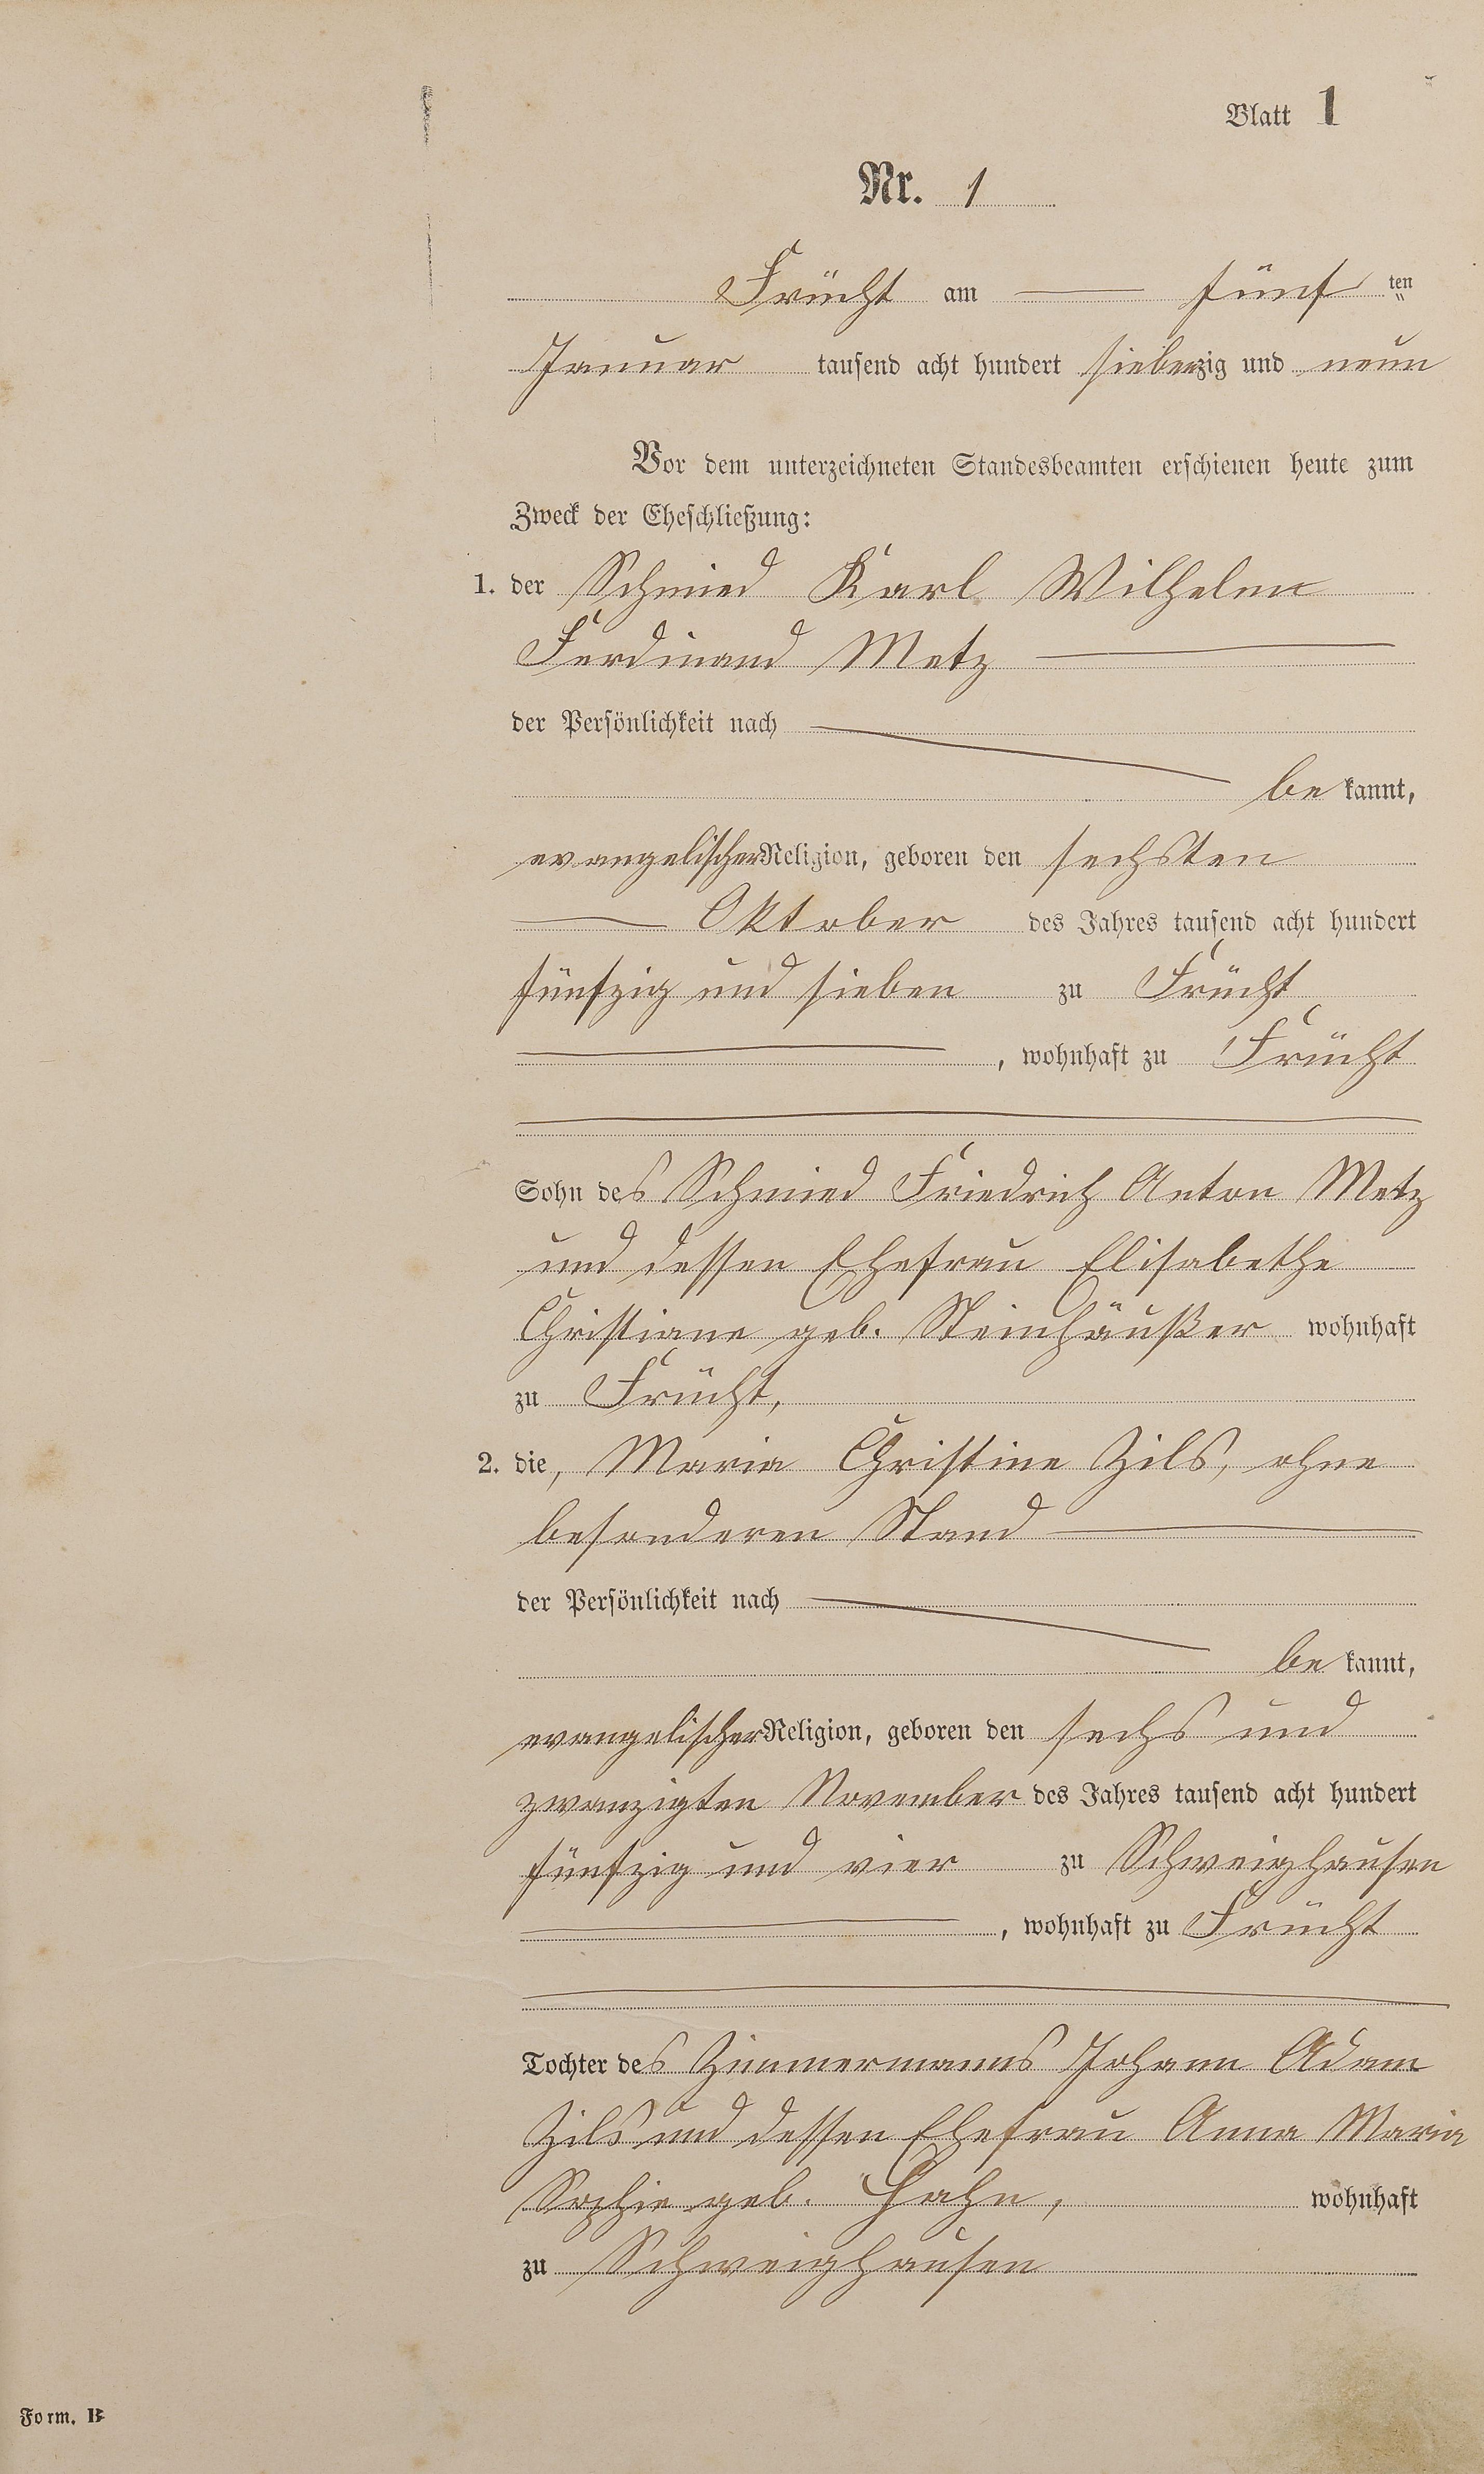 Blatt 1
Nr. 1
Frücht am fünf ten
Januar tausend acht hundert siebenzig und neun
Vor dem unterzeichneten Standesbeamten erschienen heute zum
Zweck der Eheschließung:
1. der Schmied Karl Wilhelm
Ferdinand Metz
der Persönlichkeit nach
be kannt,
evangelischer Religion, geboren den sechsten
Oktober des Jahres tausend acht hundert
fünfzig und sieben zu Frücht
, wohnhaft zu Frücht
Sohn des Schmied Friedrich Anton Metz
und dessen Ehefrau Elisabethe
Christiane geb. Steinhäußer wohnhaft
zu Frücht,
2. die, Maria Christine Zils, ohne
besonderen Stand
der Persönlichkeit nach
be kannt,
evangelischer Religion, geboren den sechs und
zwanzigten November des Jahres tausend acht hundert
fünfzig und vier zu Schweighausen
, wohnhaft zu Frücht
Tochter des Zimmermanns Johann Adam
Zils und dessen Ehefrau Anna Maria
Sophie geb. Hahn, wohnhaft
zu Schweighausen
Form. B